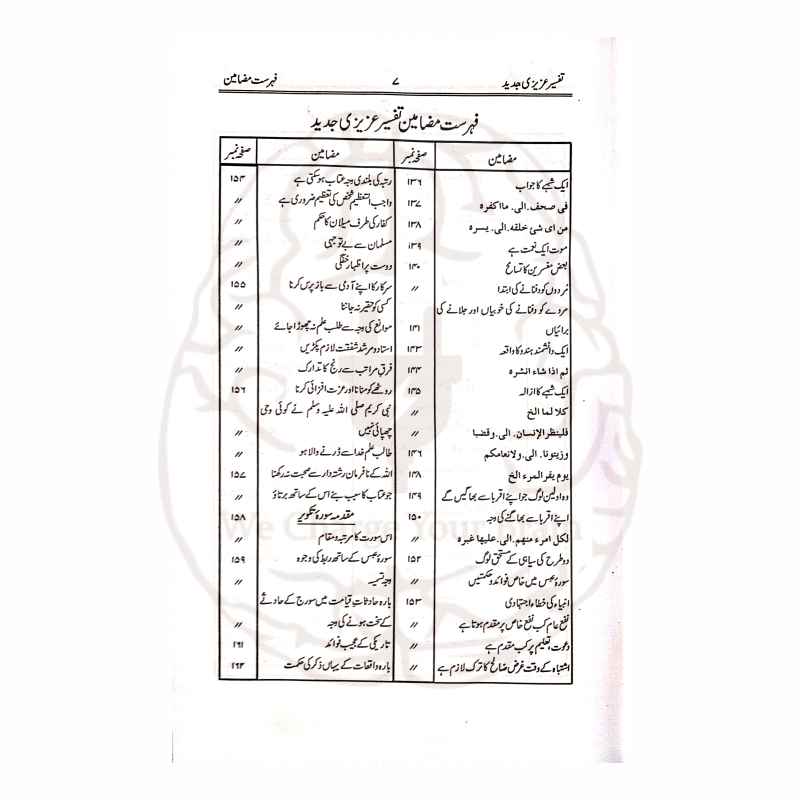 تفسیر عزیزی جدید ۷ فہرست مضامین
فہرست مضامین تفسیر عزیزی جدید
مضامین صفحہ نمبر
ایک شبہے کا جواب ۱۳۶
فی صحف۔الی۔ ما اکفرہ ۱۳۷
من ای شئ خلقه۔الی۔ یسرہ ۱۳۸
موت ایک نعمت ہے ۱۳۹
بعض مفسرین کا تسامح ۱۴۰
مُردوں کو دفنانے کی ابتدا ۱۱
مردے کو دفنانے کی خوبیاں اور جلانے کی
برائیاں ۱۴۱
ایک دانشمند ہندو کا واقعہ ۱۴۳
ثم اذا شاء انشرہ ۱۴۴
ایک شبہے کا ازالہ ۱۴۵
کلا لما الخ ۱۱
فلینظر الإنسان۔ الی۔ وقضبا ۱۱
وزیتونا۔ الی۔ ولانعامکم ۱۴۶
یوم یفر المرء الخ ۱۴۸
وہ اولین لوگ جو اپنے اقربا سے بھاگیں گے ۱۴۹
اپنے اقربا سے بھاگنے کی وجہ ۱۵۰
لکل امرء منهم۔الی۔ علیها غبرہ ۱۱
دو طرح کی سیاہی کے مستحق لوگ ۱۵۲
سورۂ عبس میں خاص فوائد و حکمتیں ۱۱
انبیاء کی خطاء اجتہادی ۱۵۳
نفع عام کب نفع خاص پر مقدم ہوتا ہے ۱۱
دعوت، تعلیم پر کب مقدم ہے ۱۱
اشتباہ کے وقت غرض صالح کا ترک لازم ہے ۱۱
مضامین صفحہ نمبر
رتبہ کی بلندی وجہ عتاب ہو سکتی ہے ۱۵۴
واجب التعظیم شخص کی تعظیم ضروری ہے ۱۱
کفار کی طرف میلان کا حکم ۱۱
مسلمان سے بے توجہی ۱۱
دوست پر اظہار خفگی ۱۱
سرکار کا اپنے آدمی سے باز پرس کرنا ۱۵۵
کسی کو حقیر نہ جاننا ۱۱
موانع کی وجہ سے طلب علم نہ چھوڑا جائے ۱۱
استاد و مرشد شفقت لازم پکڑیں ۱۱
فرق مراتب سے رنج کا تدارک ۱۱
روٹھے کو منانا اور عزت افزائی کرنا ۱۵۶
نبی کریم صلی اللہ علیہ وسلم نے کوئی وحی
چھپائی نہیں ۱۱
طالب علم خدا سے ڈرنے والا ہو ۱۱
اللہ کے نافرمان رشتہ دار سے محبت نہ رکھنا ۱۵۷
جو عتاب کا سبب بنے اس کے ساتھ برتاؤ ۱۱
مقدمہ سورۂ تکویر ۱۵۸
اس سورت کا مرتبہ و مقام ۱۱
سورۂ عبس کے ساتھ ربط کی وجوہ ۱۵۹
وجہ تسمیہ ۱۱
بارہ حادثاتِ قیامت میں سورج کے حادثے
کے سخت ہونے کی وجہ ۱۱
تاریکی کے عجیب فوائد ۱۶۱
بارہ واقعات کے یہاں ذکر کی حکمت ۱۶۴
We Charge Your